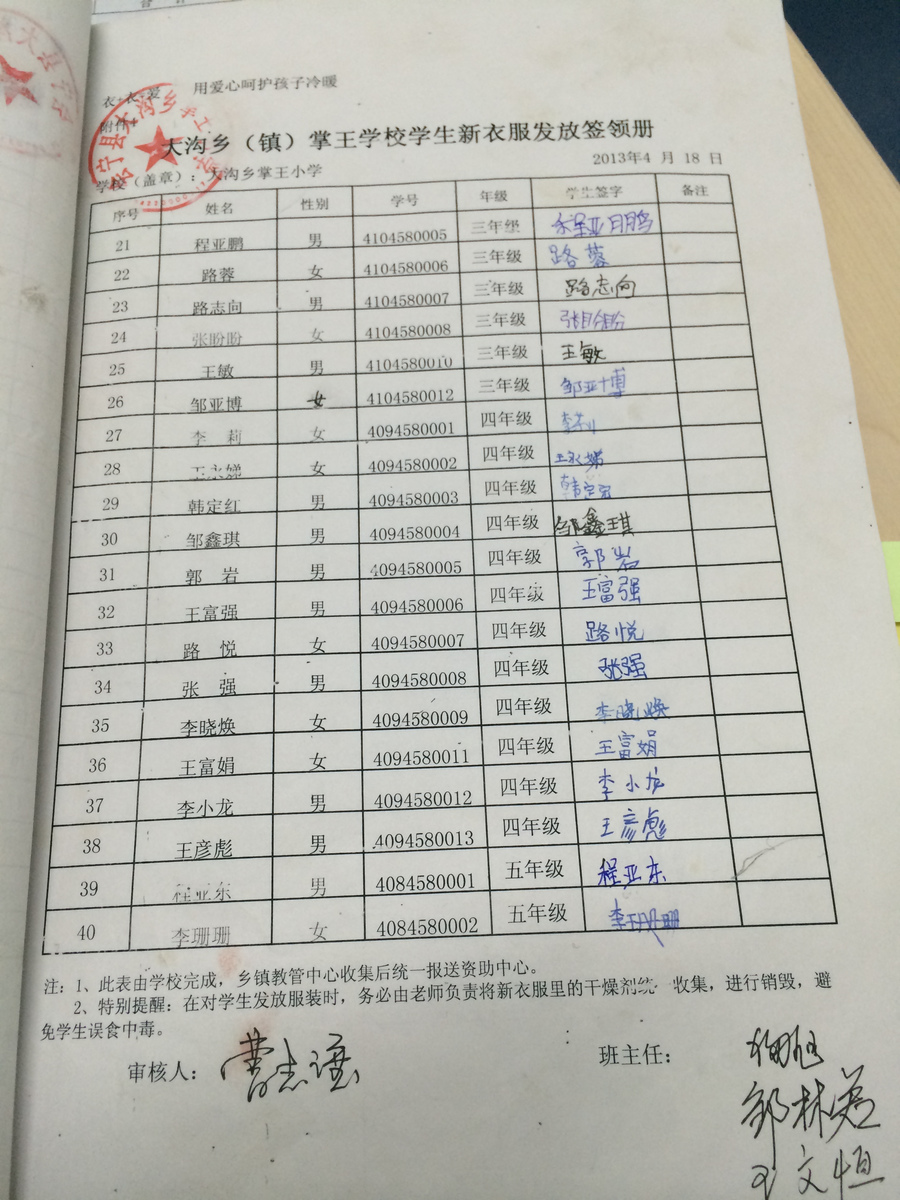 衣+衣=爱 用爱心呵护孩子冷暖
附件4
大沟乡（镇）掌王学校学生新衣服发放签领册
学校（盖章）：大沟乡掌王小学 2013年4 月 18 日
序号 姓名 性别 学号 年级 学生签字 备注
21 程亚鹏 男 4104580005 三年级 程亚鹏
22 路蓉 女 4104580006 三年级 路蓉
23 路志向 男 4104580007 三年级 路志向
24 张盼盼 女 4104580008 三年级 张盼盼
25 王敏 男 4104580010 三年级 王敏
26 邹亚博 女 4104580012 三年级 邹亚博
27 李 莉 女 4094580001 四年级 李莉
28 王永娣 女 4094580002 四年级 王永娣
29 韩定红 男 4094580003 四年级 韩定
30 邹鑫琪 男 4094580004 四年级 邹鑫琪
31 郭 岩 男 4094580005 四年级 郭岩
32 王富强 男 4094580006 四年级 王富强
33 路 悦 女 4094580007 四年级 路悦
34 张 强 男 4094580008 四年级 张强
35 李晓焕 女 4094580009 四年级 李晓焕
36 王富娟 女 4094580011 四年级 王富娟
37 李小龙 男 4094580012 四年级 李小龙
38 王彦彪 男 4094580013 四年级 王彦彪
39 程亚东 男 4084580001 五年级 程亚东
40 李珊珊 女 4084580002 五年级 李珊珊
注：1、此表由学校完成，乡镇教管中心收集后统一报送资助中心。
2、特别提醒：在对学生发放服装时，务必由老师负责将新衣服里的干燥剂统一收集，进行销毁，避
免学生误食中毒。
审核人： 班主任：
邹林
王文恒